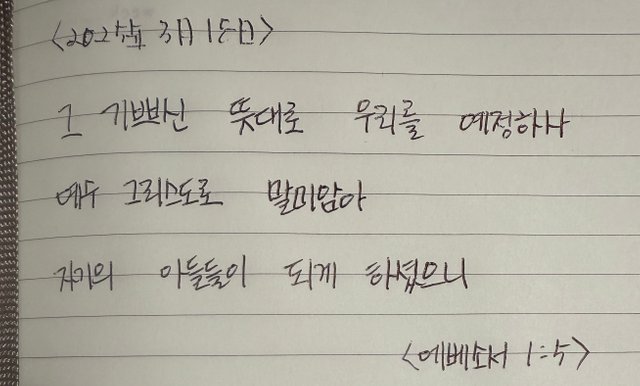 <2025년 3월 15일>
그 기쁘신 뜻대로 우리를 예정하사
예수 그리스도로 말미암아
자기의 아들들이 되게 하셨으니
<에베소서 1:5>